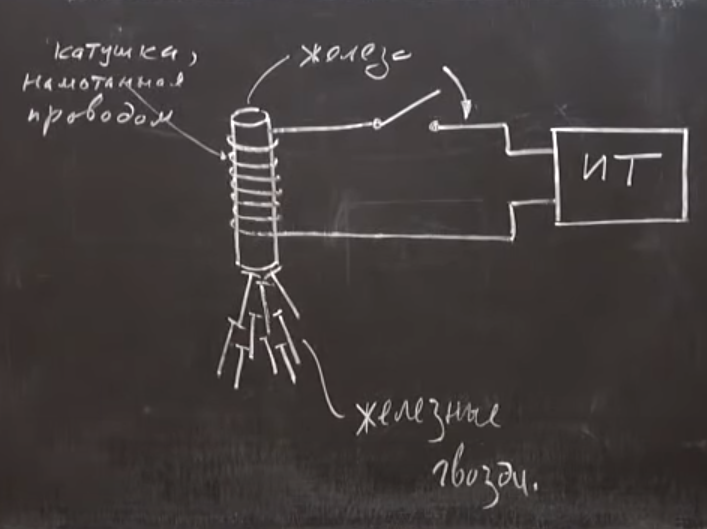 катушка,
намотанная
проводом
железо
ИТ
железные
гвозди.